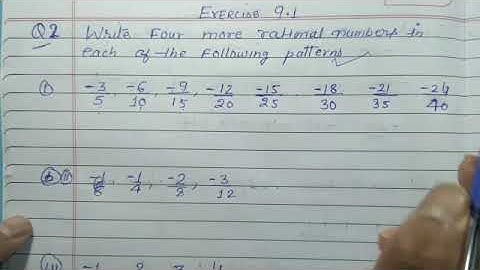 EXERCISE 9.1
Q2 Write Four more rational numbers in
each of the following patterns
(i) -3/5, -6/10, -9/15, -12/20, -15/25, -18/30, -21/35, -24/40
(ii) -1/8, -1/4, -2/8, -3/12
(iii) -1